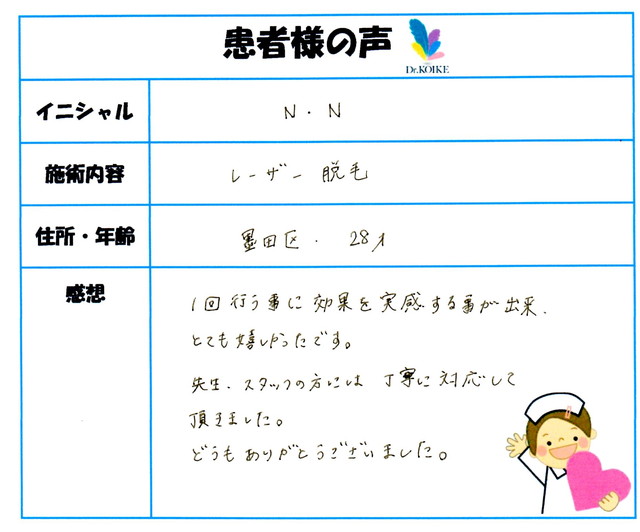 患者様の声
Dr.KOIKE
イニシャル
N・N
施術内容
レーザー 脱毛
住所・年齢
墨田区・ 28才
感想
1回行う事に効果を実感する事が出来、
とても嬉しかったです。
先生、スタッフの方には 丁寧に対応して
頂きました。
どうもありがとうございました。